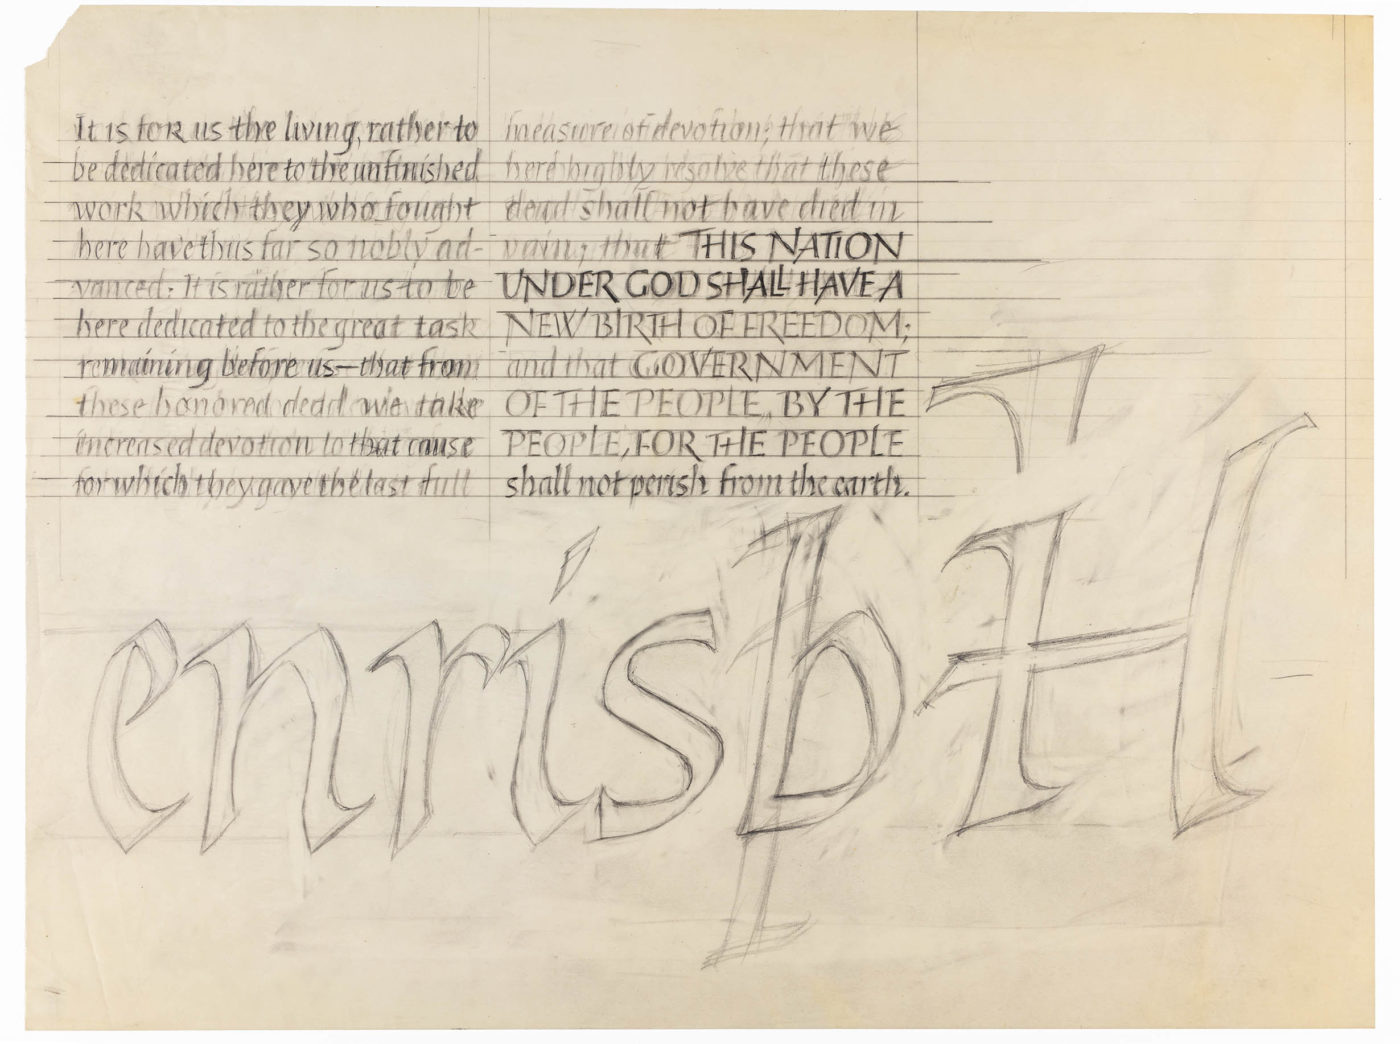 It is for us the living, rather to
be dedicated here to the unfinished
work which they who fought
here have thus far so nobly ad-
vanced. It is rather for us to be
here dedicated to the great task
remaining before us—that from
these honored dead we take
increased devotion to that cause
for which they gave the last full
measure of devotion; that we
here highly resolve that these
dead shall not have died in
vain; that THIS NATION
UNDER GOD SHALL HAVE A
NEW BIRTH OF FREEDOM;
and that GOVERNMENT
OF THE PEOPLE, BY THE
PEOPLE, FOR THE PEOPLE
shall not perish from the earth.